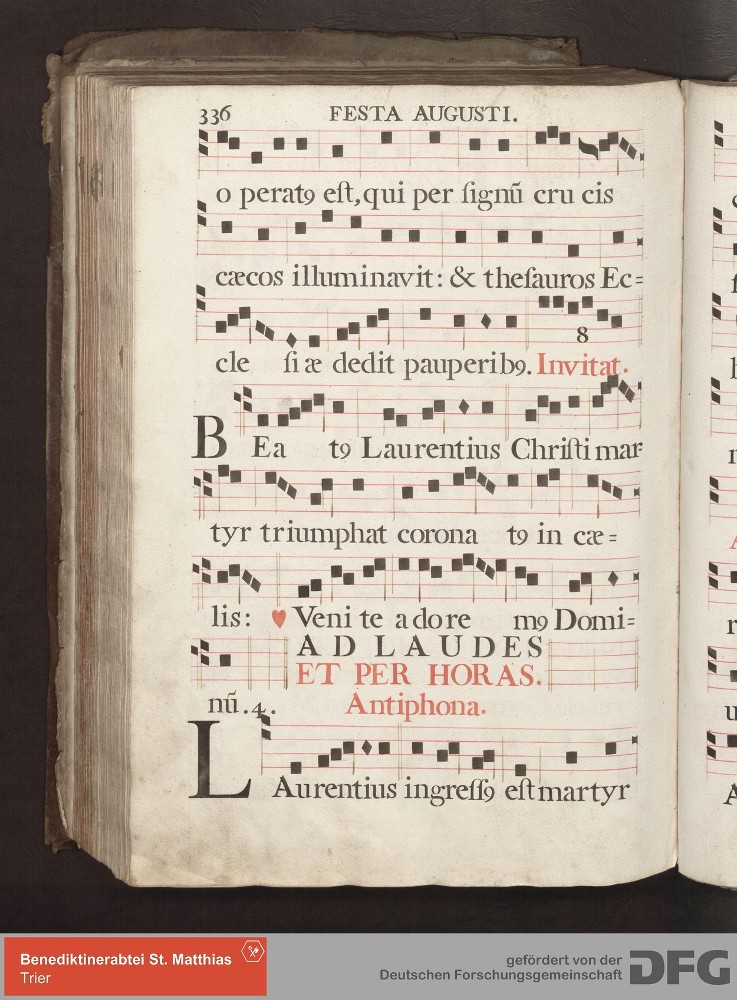 336 FESTA AUGUSTI.
o perat9 eſt, qui per ſignũ cru cis
cæcos illuminavit: & theſauros Ec=
8
cle ſi æ dedit pauperib9. Invitat.
BEa t9 Laurentius Chriſti mar=
tyr triumphat corona t9 in cæ=
lis: Veni te adore m9 Domi=
AD LAUDES
ET PER HORAS.
nũ. 4. Antiphona.
LAurentius ingreſſ9 eſt martyr
Benediktinerabtei St. Matthias
Trier
gefördert von der
Deutschen Forschungsgemeinschaft
DFG